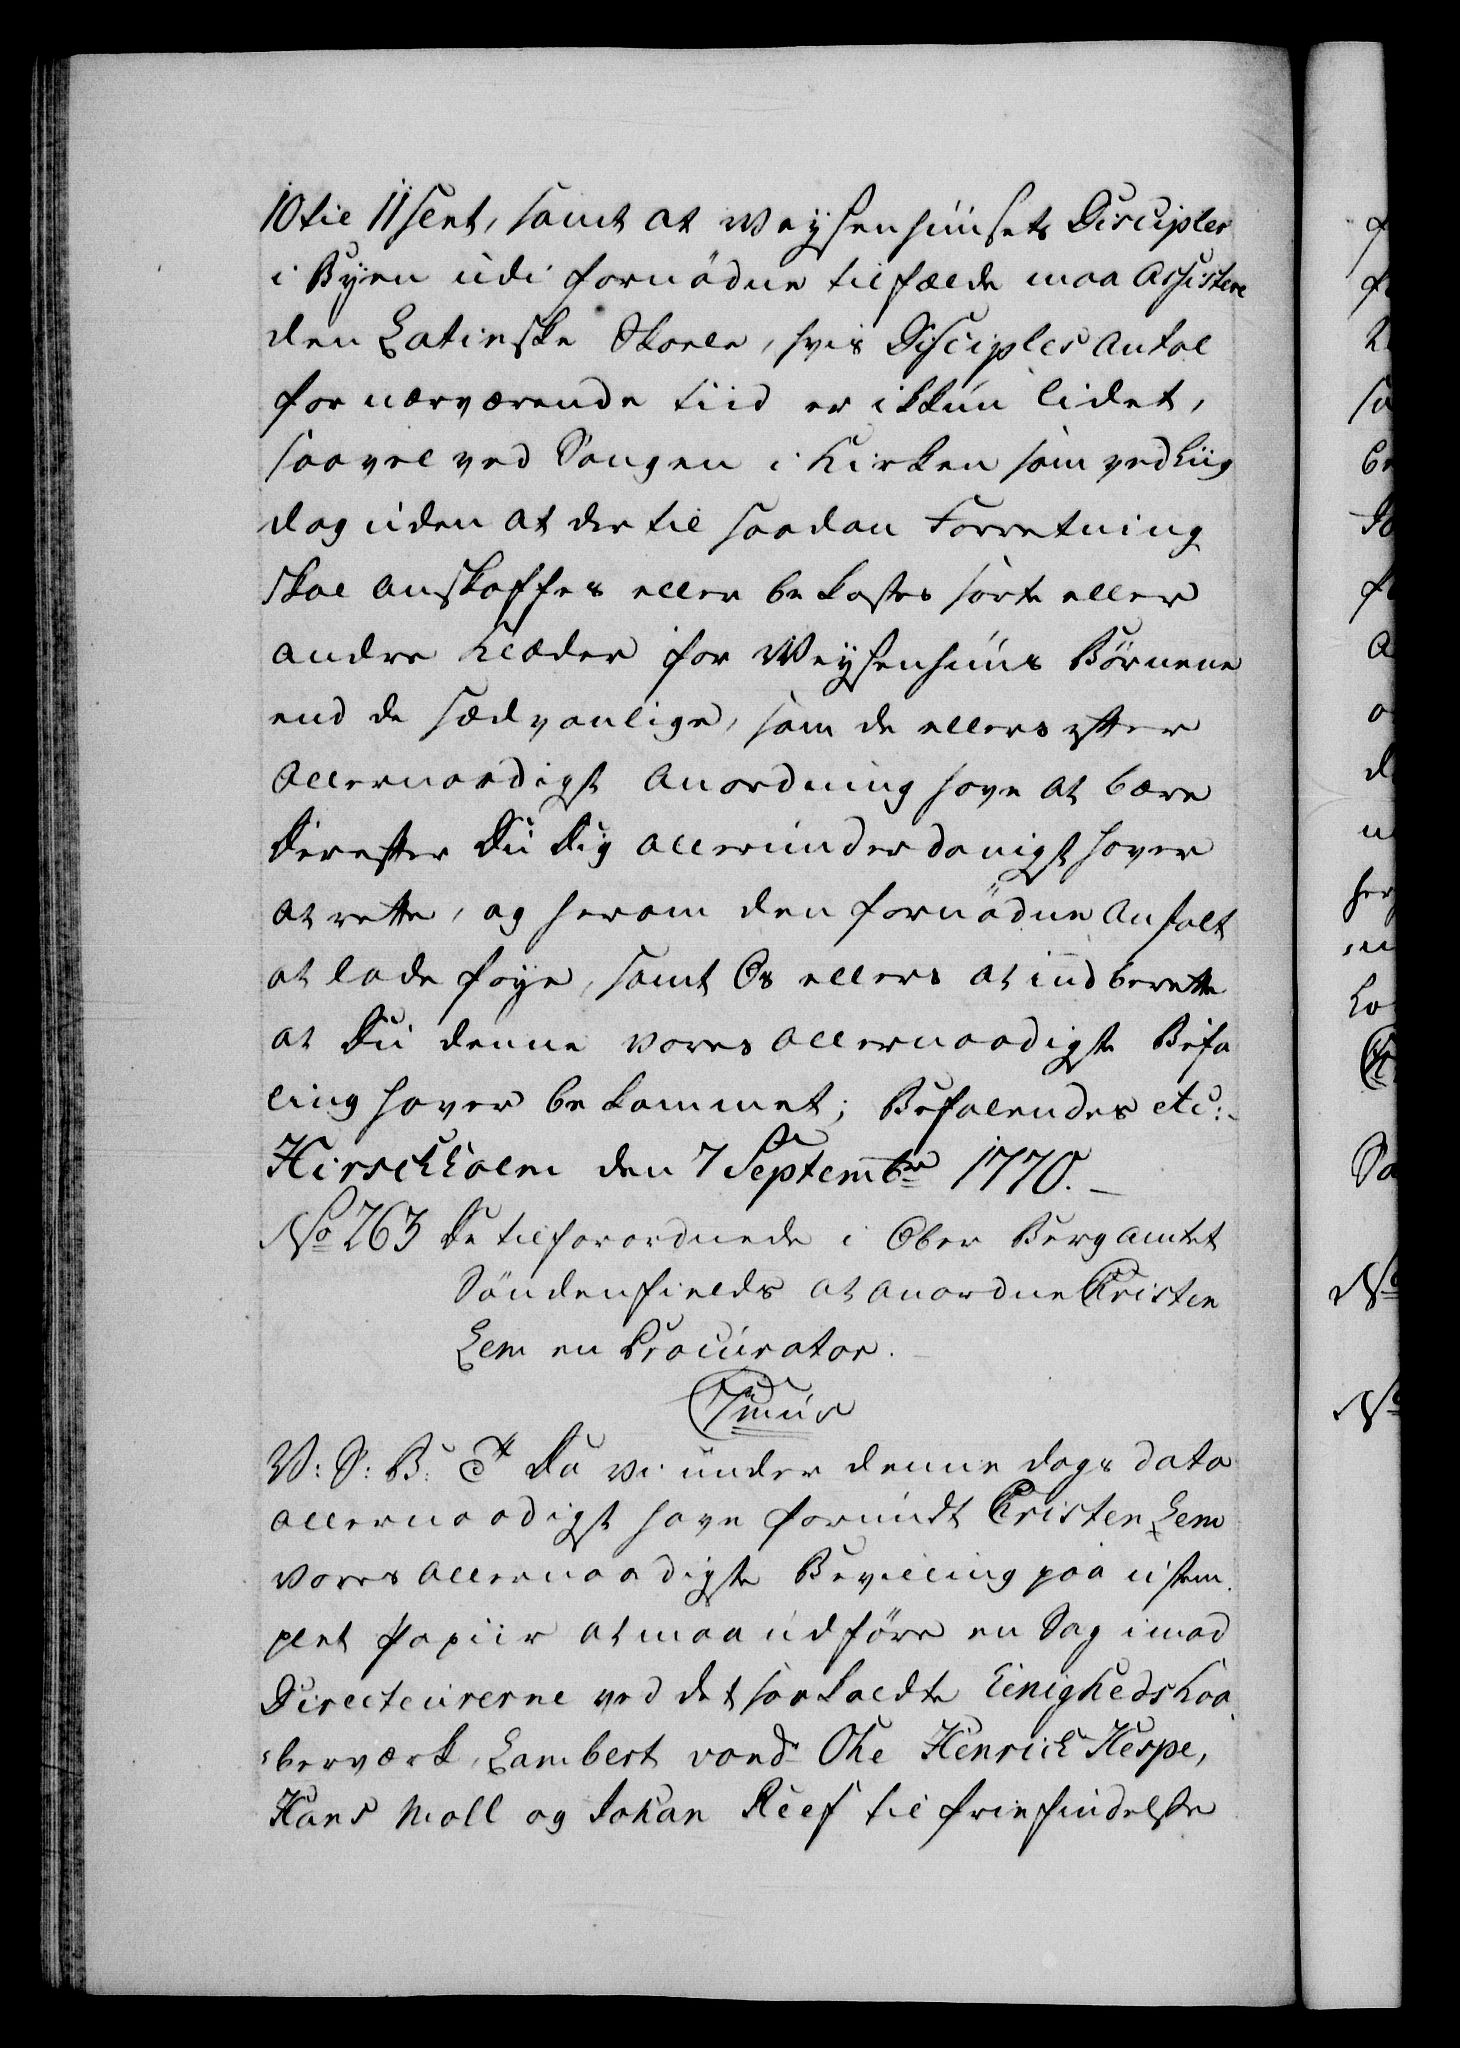 10 til 11 sent, samt at Weysenhuusets Discipler
i Byen udi fornødne tilfælde maa Assistere
den Latinske Skole, hvis Disciples Antal
for nærværende tiid er ikkun lidet,
saavel ved Sangen i Kirken som ved Liig
dog uden at der til saadan Forretning
skal anskaffes eller bekostes sorte eller
andre Klæder for Weysenhuus Børnene
end de sædvanlige, som de ellers efter
Allernaadigst Anordning have at bære
Derefter Du Dig allerunderdanigst haver
at rette, og herom den fornødne Anstalt
at lade føye, samt Os ellers at indberette
at Du denne vores Allernaadigste Befa
ling haver bekommet; Befalendes etc:
Hirschholm den 7 Septembr 1770.
No 263 De tilforordnede i Ober Berg Amtet
Søndenfields at anordne Cristen
Lem en Procurator.
V: S: B: Da vi under denne dags dato
allernaadigst have forundt Cristen Lem
vores Allernaadigste Bevilling paa ustem
plet Papiir at maa udføre en Sag imod
Directeurerne ved det saakaldte Einigheds Kaa
berværk, Lambert vand Ohe Henrich Hespe,
Hans Moll og Johan Reef til friefindelse